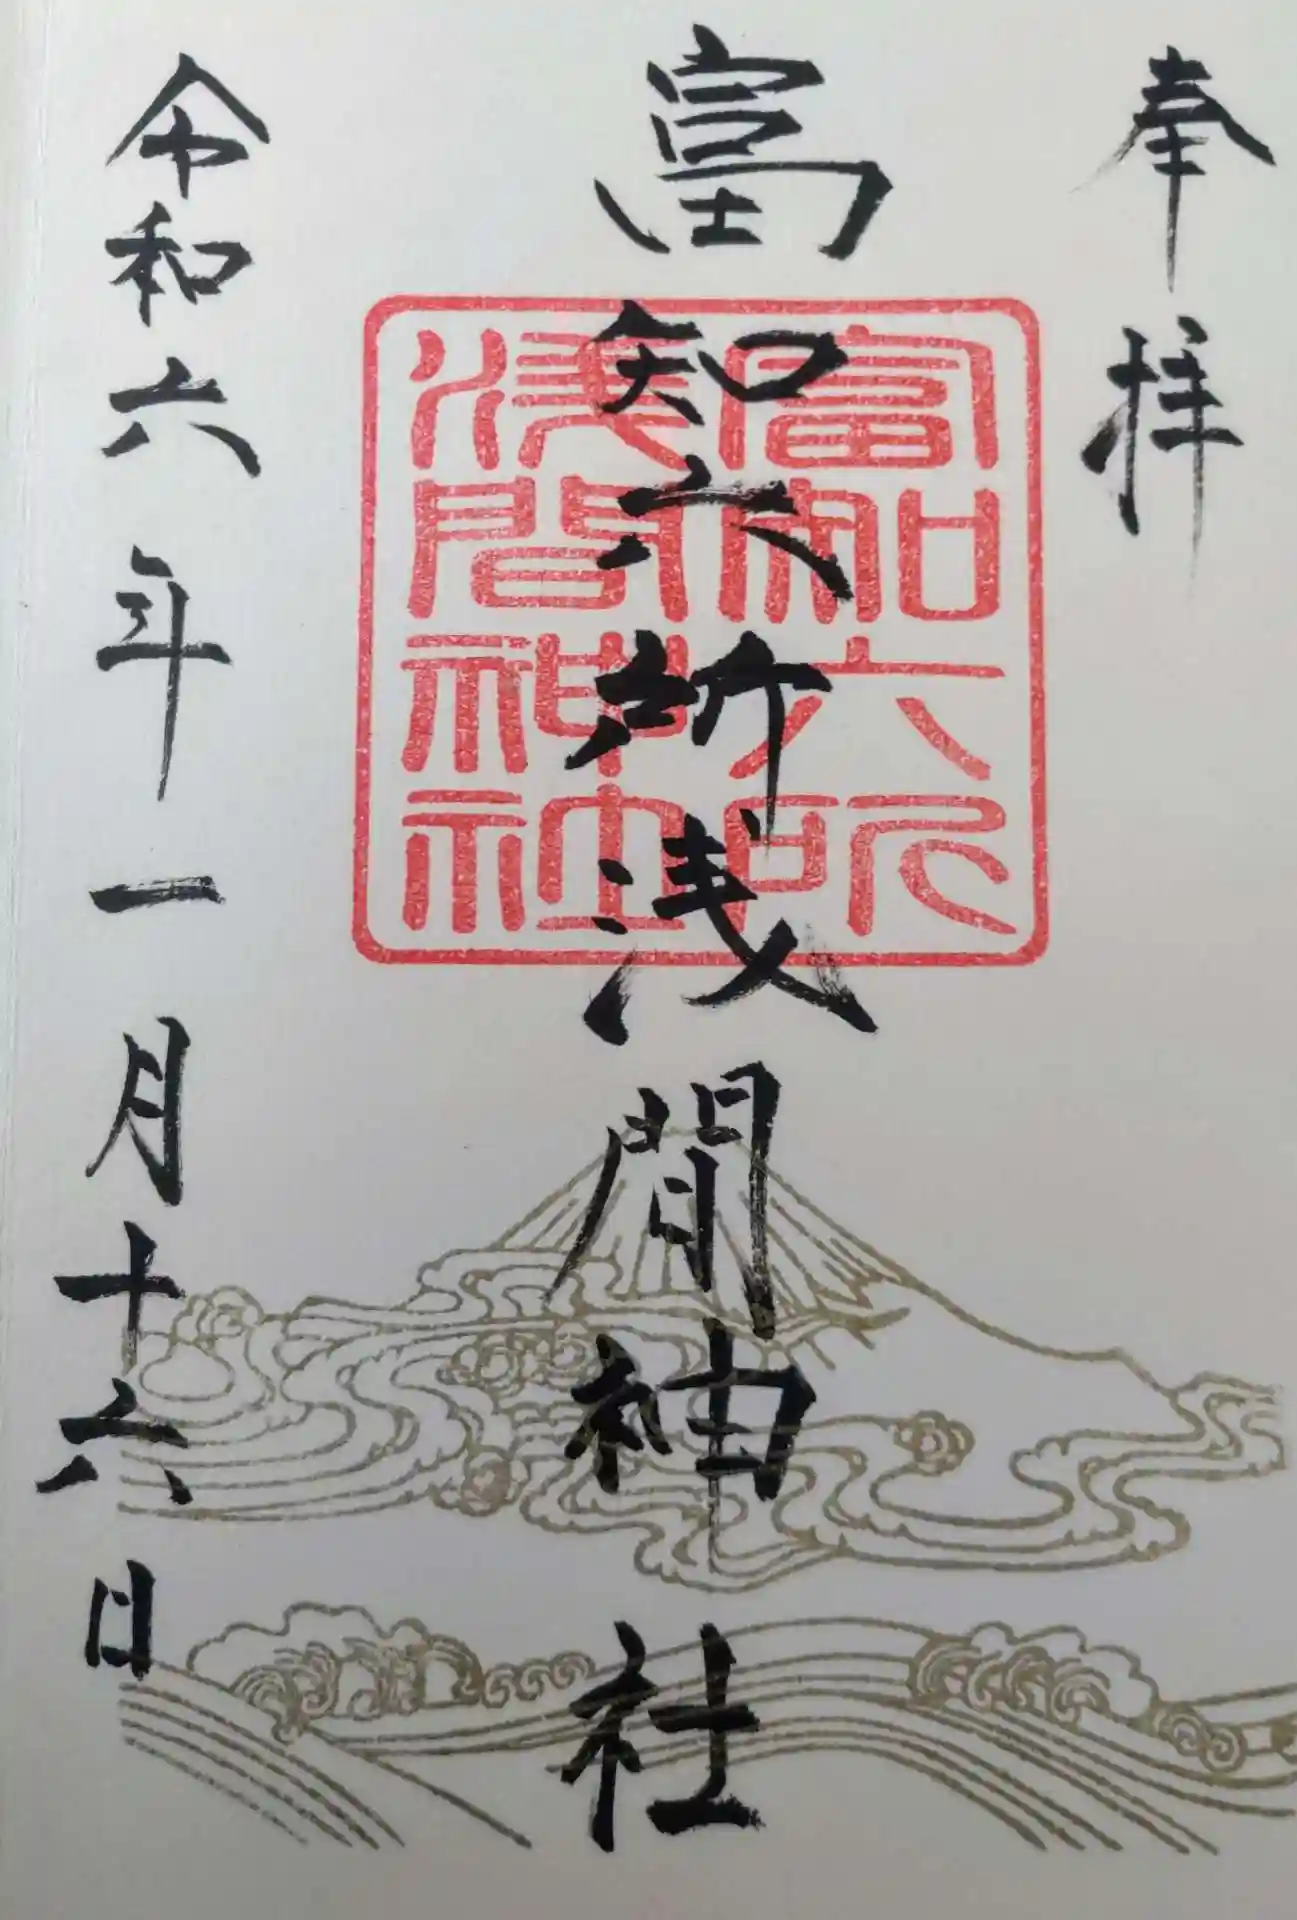 奉拝
富知六所浅間神社
富知六所
浅間神社
令和六年一月十六日